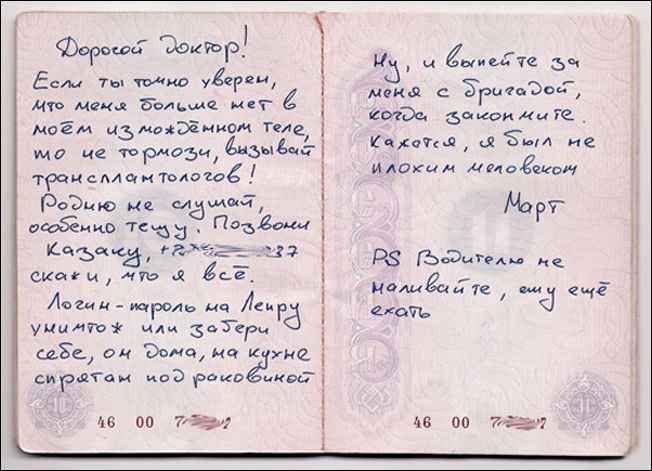 Дорогой доктор!
Если ты точно уверен,
что меня больше нет в
моём измождённом теле,
то не тормози, вызывай
трансплантологов!
Родню не слушай,
особенно тещу. Позвони
Казаку,
скажи, что я всё.
Логин-пароль на Лепру
уничтож или забери
себе, он дома, на кухне
спрятан под раковиной
46 00 7
Ну, и выпейте за
меня с бригадой,
когда закончите.
Кажется, я был не
плохим человеком
Март
PS Водителю не
наливайте, ему ещё
ехать
46 00 7